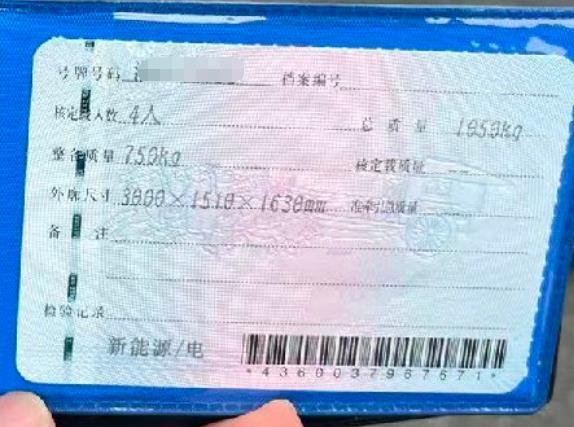 号牌号码 档案编号
核定载人数 4人 总质量 1050kg
整备质量 750kg 核定载质量 --
外廓尺寸 3000×1510×1630mm 准牵引总质量
备注
检验记录
新能源/电
*4360037967671*